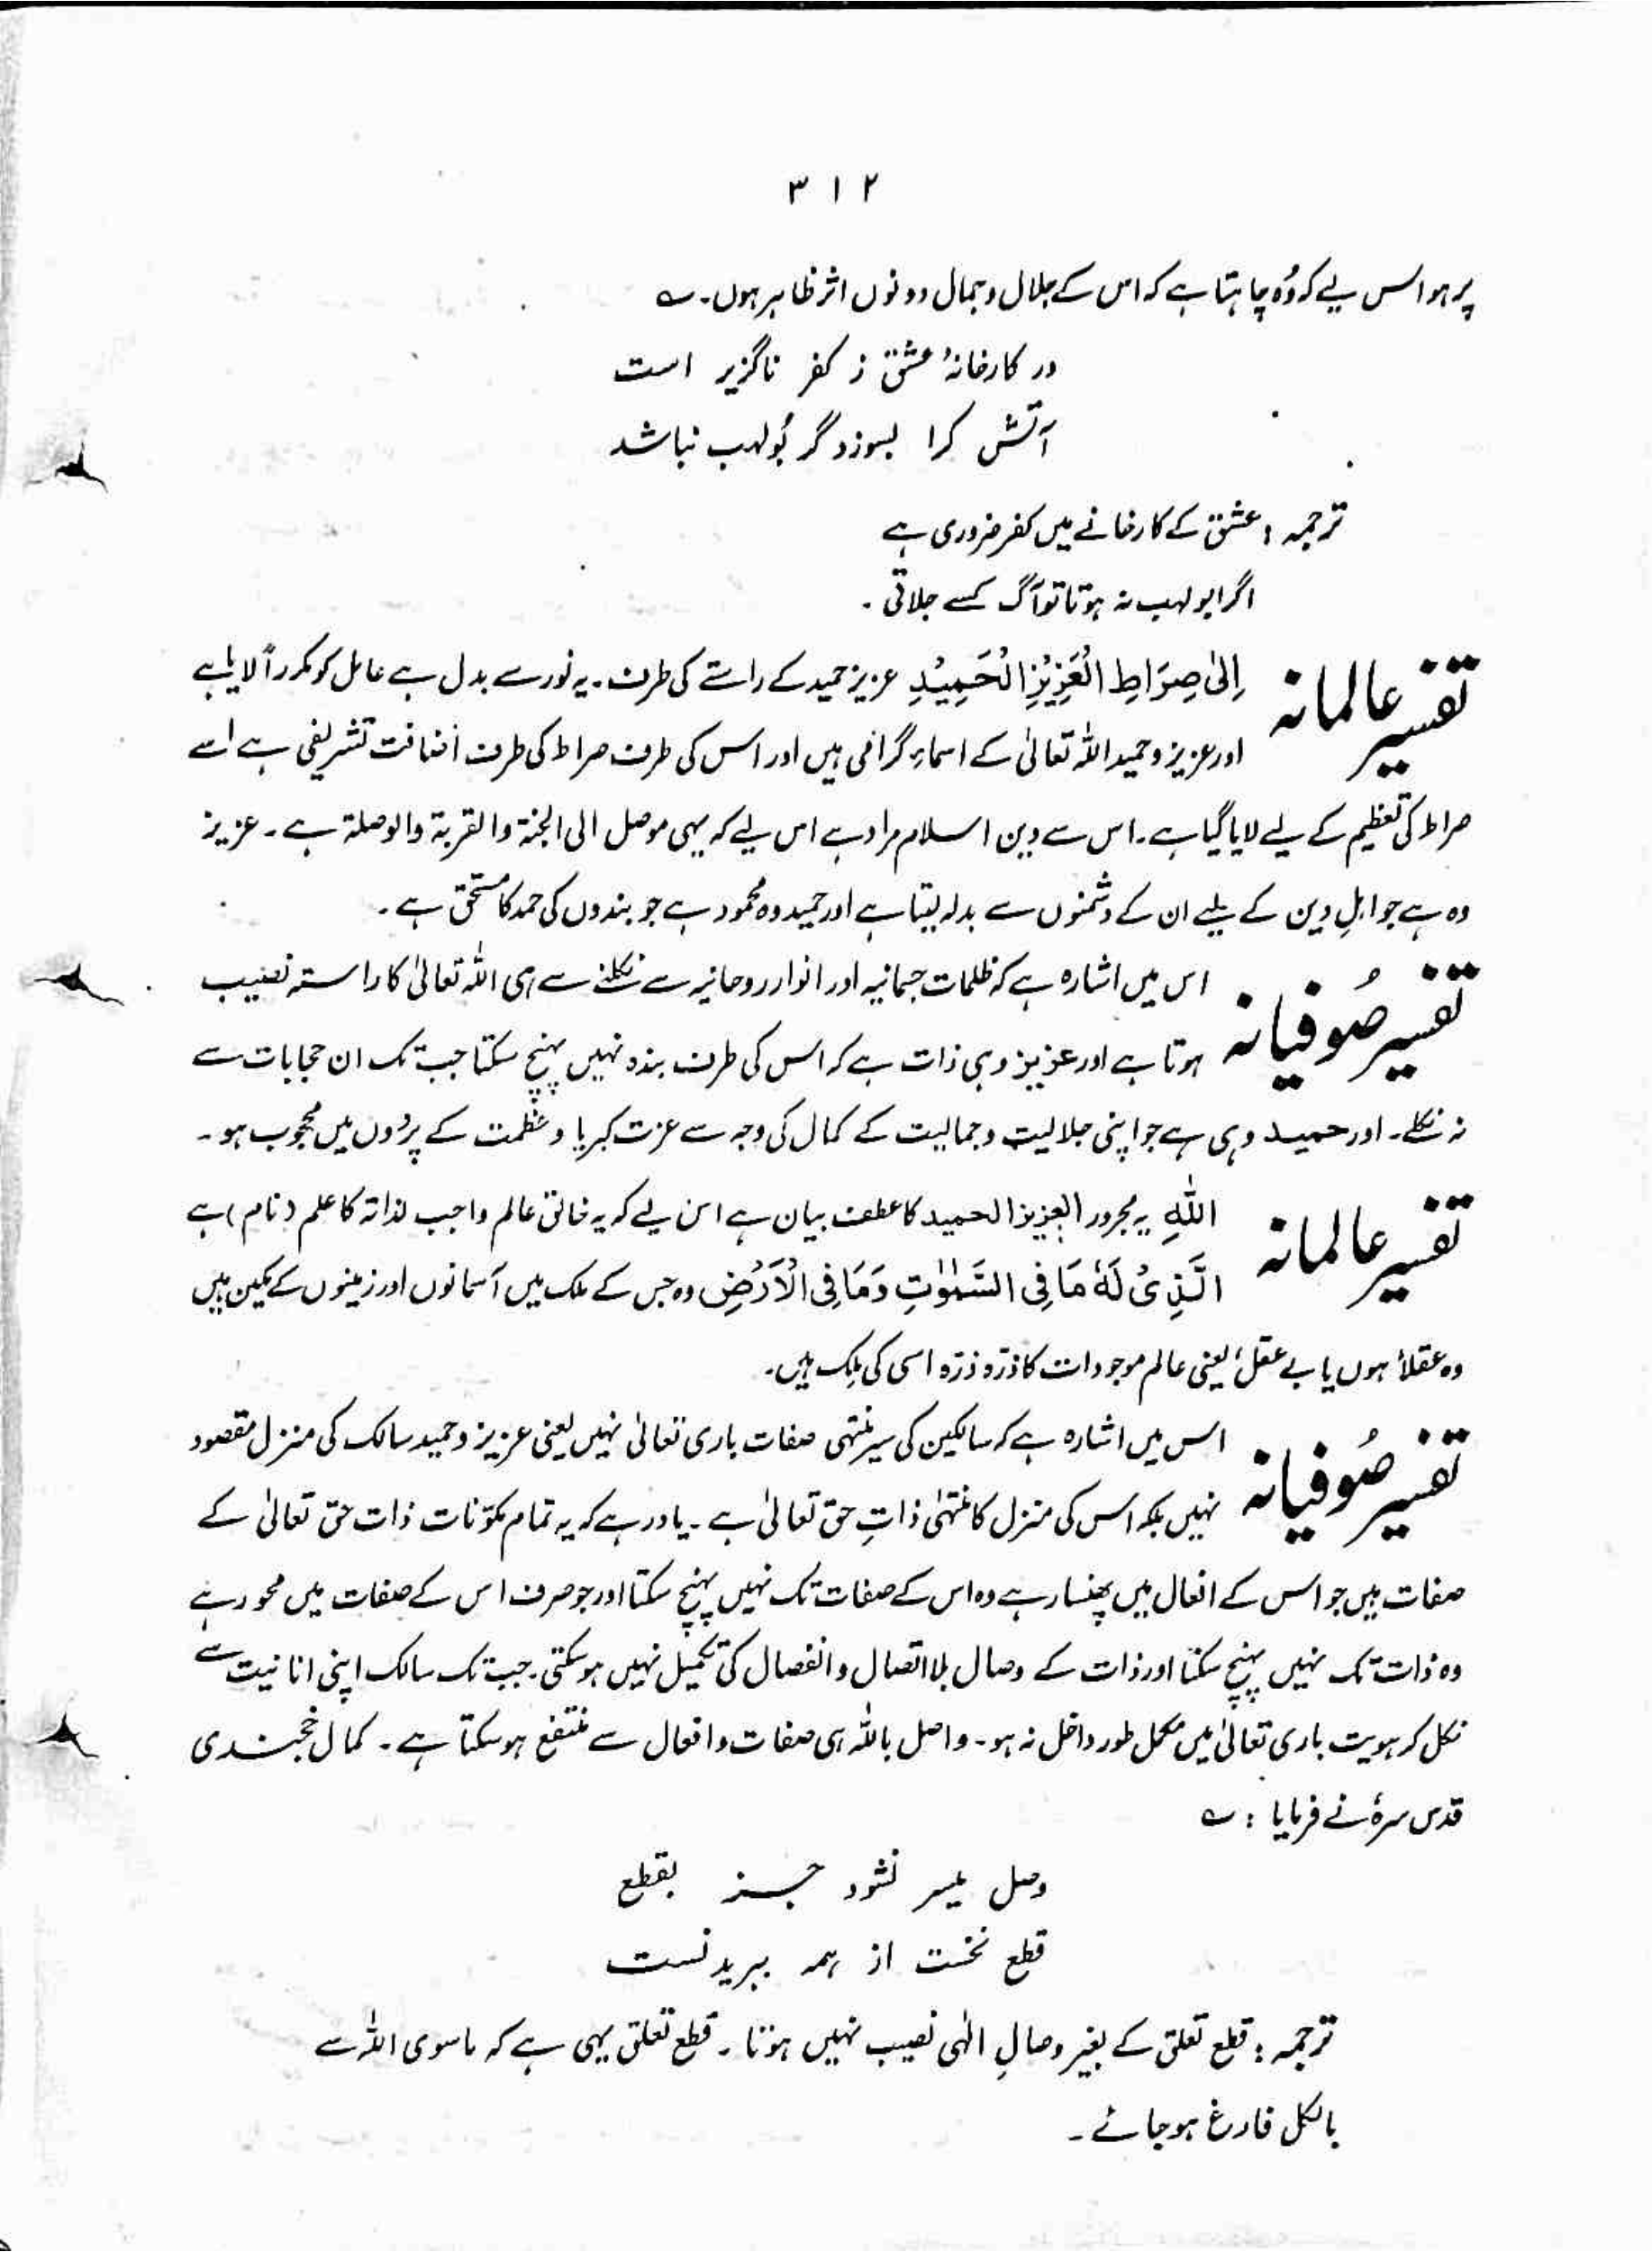 ۳۱۲
پر ہو اس لیے کہ وُہ چاہتا ہے کہ اس کے جلال و جمال دونوں اثر ظاہر ہوں۔ ؎
در کارخانۂ عشق ز کفر ناگزیر است
آتش کرا بسوزد گر بُولہب نباشد
ترجمہ : عشق کے کارخانے میں کفر ضروری ہے
اگر ابولہب نہ ہوتا تو آگ کسے جلاتی ۔
تفسیر عالمانہ اِلیٰ صِرَاطِ الْعَزِیْزِ الْحَمِیْدِ عزیز حمید کے راستے کی طرف ۔ یہ نور سے بدل ہے عامل کو مکرراً لایا ہے
اور عزیز و حمید اللہ تعالیٰ کے اسماء گرامی ہیں اور اس کی طرف صراط کی طرف اضافت تشریفی ہے اسے
صراط کی تعظیم کے لیے لایا گیا ہے ۔ اس سے دین اسلام مراد ہے اس لیے کہ یہی موصل الی الجنۃ والقربۃ والوصلۃ ہے ۔ عزیز
وہ ہے جو اہلِ دین کے لیے ان کے دشمنوں سے بدلہ لیتا ہے اور حمید وہ محمود ہے جو بندوں کی حمد کا مستحق ہے ۔
تفسیر صُوفیانہ اس میں اشارہ ہے کہ ظلمات جسمانیہ اور انوار روحانیہ سے نکلنے سے ہی اللہ تعالیٰ کا راستہ نصیب
ہوتا ہے اور عزیز وہی ذات ہے کہ اس کی طرف بندہ نہیں پہنچ سکتا جب تک ان حجابات سے
نہ نکلے ۔ اور حمید وہی ہے جو اپنی جلالیت و جمالیت کے کمال کی وجہ سے عزت کبریا و عظمت کے پردوں میں محجوب ہو ۔
تفسیر عالمانہ اللّٰهِ یہ مجرور العزیز الحمید کا عطف بیان ہے اس لیے کہ یہ خالق عالم واجب لذاتہ کا علم (نام) ہے
الَّذِیْ لَهٗ مَا فِی السَّمٰوٰتِ وَمَا فِی الْاَرْضِ وہ جس کے ملک میں آسمانوں اور زمینوں کے مکین ہیں
وہ عقلاً ہوں یا بے عقل، یعنی عالم موجودات کا ذرّہ ذرّہ اسی کی مِلک ہیں ۔
تفسیر صُوفیانہ اس میں اشارہ ہے کہ سالکین کی سیر منتہی صفات باری تعالیٰ نہیں یعنی عزیز و حمید سالک کی منزل مقصود
نہیں بلکہ اس کی منزل کا منتہیٰ ذاتِ حق تعالیٰ ہے ۔ یاد رہے کہ یہ تمام مکوّنات ذات حق تعالیٰ کے
صفات ہیں جو اس کے افعال میں پھنسا رہے وہ اس کے صفات تک نہیں پہنچ سکتا اور جو صرف اس کے صفات میں محو رہے
وہ ذات تک نہیں پہنچ سکتا اور ذات کے وصال بلا اتصال و انفصال کی تکمیل نہیں ہو سکتی ۔ جب تک سالک اپنی انانیت سے
نکل کر ہویت باری تعالیٰ میں مکمل طور داخل نہ ہو ۔ واصل باللہ ہی صفات و افعال سے منتفع ہو سکتا ہے ۔ کمال خجندی
قدس سرہٗ نے فرمایا : ؎
وصل میسر نشود جز بقطع
قطع نخست از ہمہ ببریدنست
ترجمہ : قطع تعلق کے بغیر وصالِ الٰہی نصیب نہیں ہوتا ۔ قطع تعلق یہی ہے کہ ماسوی اللہ سے
بالکل فارغ ہو جائے ۔